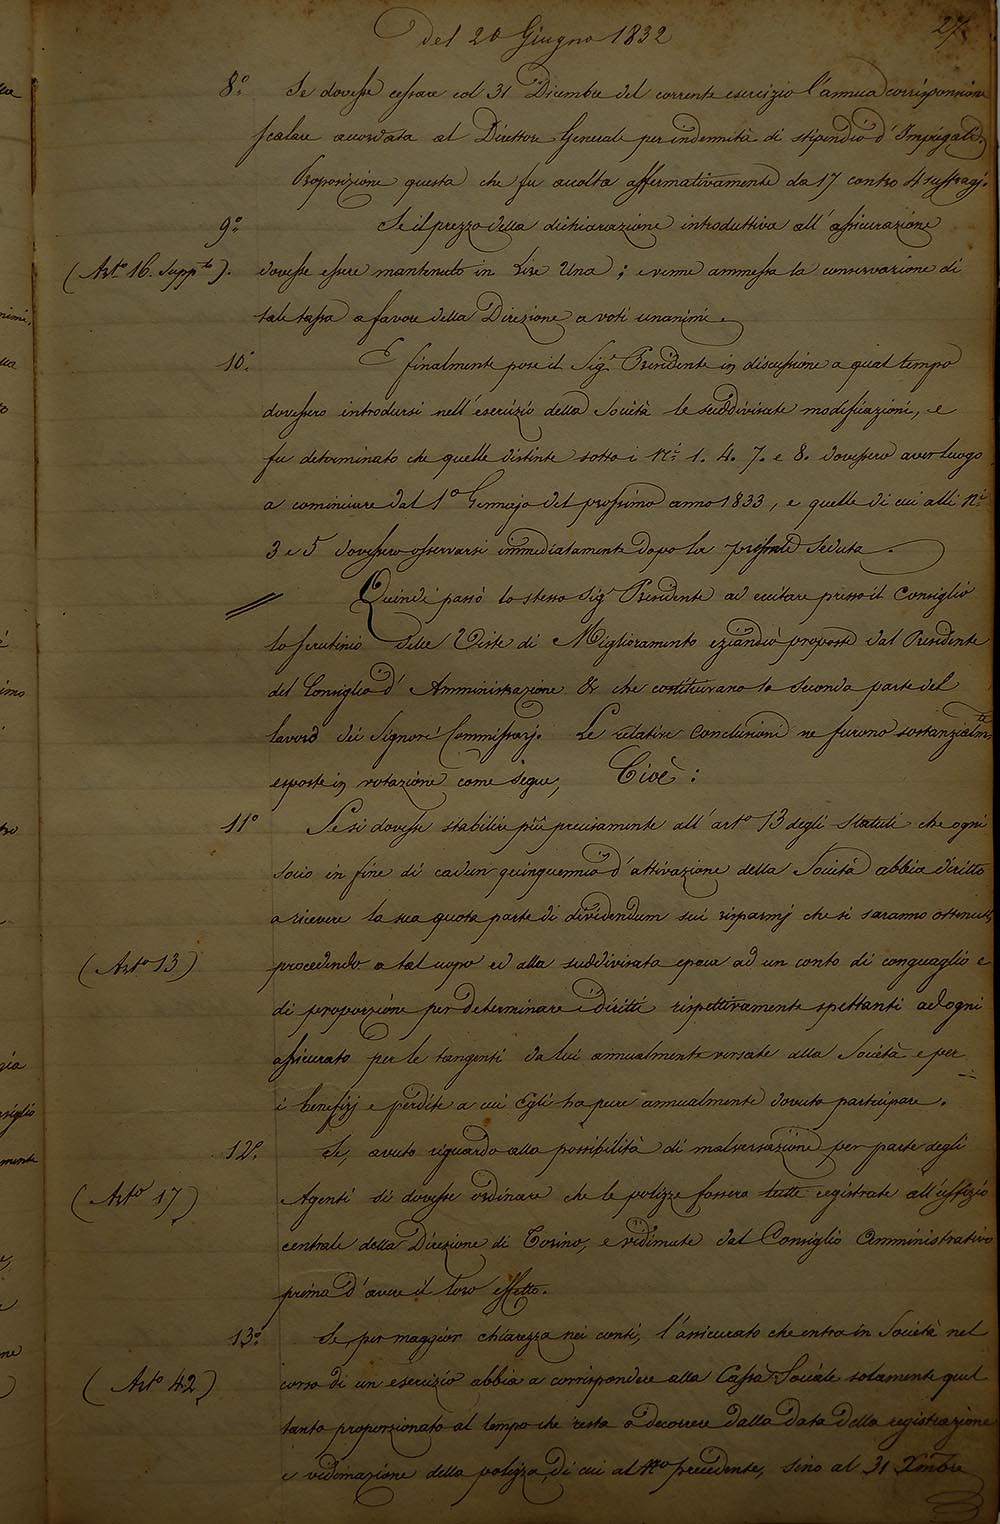 del 20 Giugno 1832
27.
8.° Se dovesse cessare col 31 Dicembre del corrente esercizio l'annua corrisponsione
scalare accordata al Direttore Generale per indennità di stipendio d'Impiegati.
Proposizione questa che fu accolta affermativamente da 17 contro 4 suffragj.
9.° Se il prezzo della dichiarazione introduttiva all'assicurazione
(Art.° 16. Supp.to). dovesse essere mantenuto in Lire Una; e venne ammessa la conservazione di
tale tassa a favore della Direzione a voti unanimi.
10.° E finalmente pose il Sig.r Presidente in discussione a qual tempo
dovessero introdursi nell'esercizio della Società le suddivisate modificazioni, e
fu determinato che quelle distinte sotto i N.i 1. 4. 7. e 8. dovessero aver luogo
a cominciare dal 1.° Gennajo del prossimo anno 1833, e quelle di cui alli N.i
3 e 5 dovessero osservarsi immediatamente dopo la presente Seduta.
Quindi passò lo stesso Sig.r Presidente ad eccitare presso il Consiglio
lo scrutinio delle Viste di Miglioramento eziandio proposte dal Presidente
del Consiglio d'Amministrazione & che costituivano la seconda parte del
lavoro dei Signori Commissarj. Le relative Conclusioni ne furono sostanzialm.te
esposte in votazione come segue, Cioè:
11° Se si dovesse stabilire più precisamente all'art.° 13 degli Statuti che ogni
socio in fine di cadun quinquennio d'attivazione della Società abbia diritto
a ricevere la sua quota parte di dividendum sui risparmj che si saranno ottenuti,
(Art.° 13) procedendo a tal uopo ed alla suddivisata epoca ad un conto di conguaglio e
di proporzione per determinare i diritti rispettivamente spettanti ad ogni
assicurato per le tangenti da lui annualmente versate alla Società e per
i benefizj e perdite a cui Egli ha pure annualmente dovuto partecipare.
12.° Se, avuto riguardo alla possibilità di malversazione per parte degli
(Art.° 17) Agenti si dovesse ordinare che le polizze fossero tutte registrate all'uffizio
centrale della Direzione di Torino, e vidimate dal Consiglio Amministrativo
prima d'avere il loro effetto.
13.° Se per maggior chiarezza nei conti, l'assicurato che entra in Società nel
(Art.° 42) corso di un esercizio abbia a corrispondere alla Cassa Sociale solamente quel
tanto proporzionato al tempo che resta a decorrere dalla data della registrazione
e vidimazione della polizza, di cui al N.° precedente, sino al 31 Xmbre